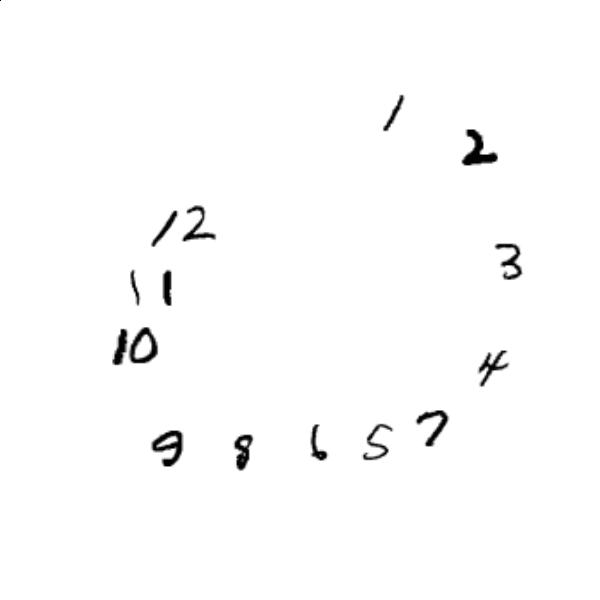 1
2
12
3
11
10
4
7
9 8 6 5